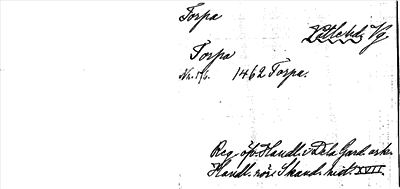 Torpa
Vg
Torpa
1462 Torpa.
Reg. öfv. Handl. i De la Gard. ark.
Handl. rör. Skand. hist. XVII